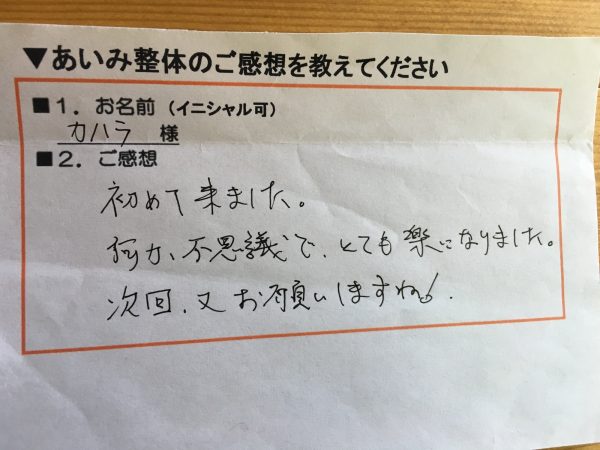 ▼あいみ整体のご感想を教えてください
■1．お名前（イニシャル可）
カハラ 様
■2．ご感想
初めて来ました。
何か、不思議で、とても楽になりました。
次回、又お願いしますね♪.